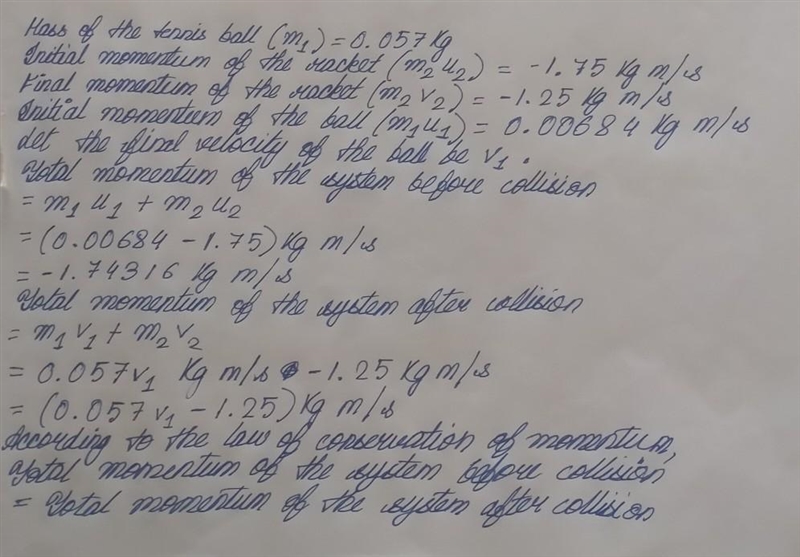 Mass of the tennis ball (m₁) = 0.057 Kg
Initial momentum of the racket (m₂u₂) = -1.75 Kg m/s
Final momentum of the racket (m₂v₂) = -1.25 Kg m/s
Initial momentum of the ball (m₁u₁) = 0.00684 Kg m/s
Let the final velocity of the ball be v₁.
Total momentum of the system before collision
= m₁u₁ + m₂u₂
= (0.00684 - 1.75) Kg m/s
= -1.74316 Kg m/s
Total momentum of the system after collision
= m₁v₁ + m₂v₂
= 0.057v₁ Kg m/s - 1.25 Kg m/s
= (0.057v₁ - 1.25) Kg m/s
According to the law of conservation of momentum,
Total momentum of the system before collision
= Total momentum of the system after collision